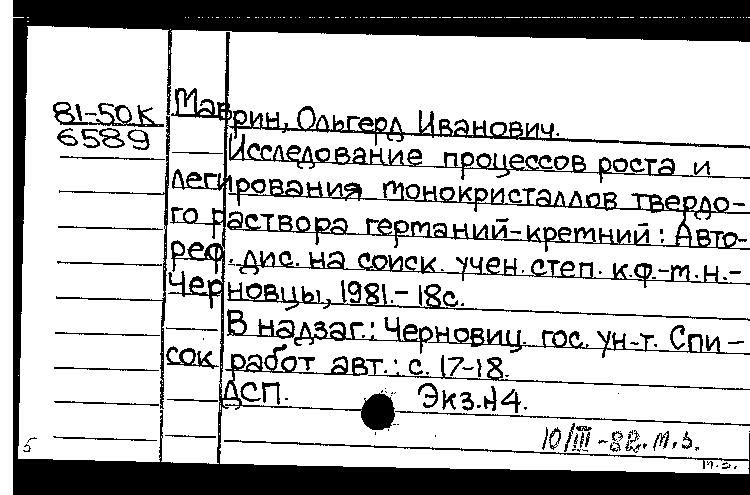 81-50К
6589
Маврин, Ольгерд Иванович.
Исследование процессов роста и
легирования монокристаллов твердо-
го раствора германий-кремний: Авто-
реф. дис. на соиск. учен. степ. к.ф.-м.н.-
Черновцы, 1981.- 18с.
В надзаг.: Черновиц. гос. ун-т. Спи-
сок работ авт.: с. 17-18.
ДСП. Экз.№4.
10/III-82. М.З.
5